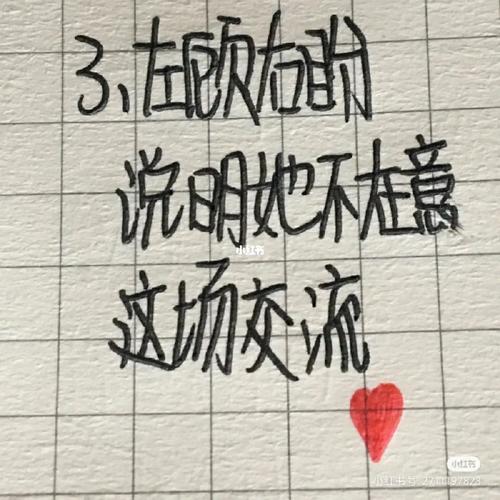 3、左顾右盼
说明她不在意
小红书
这场交流
小红书
小红书号: 2711197823